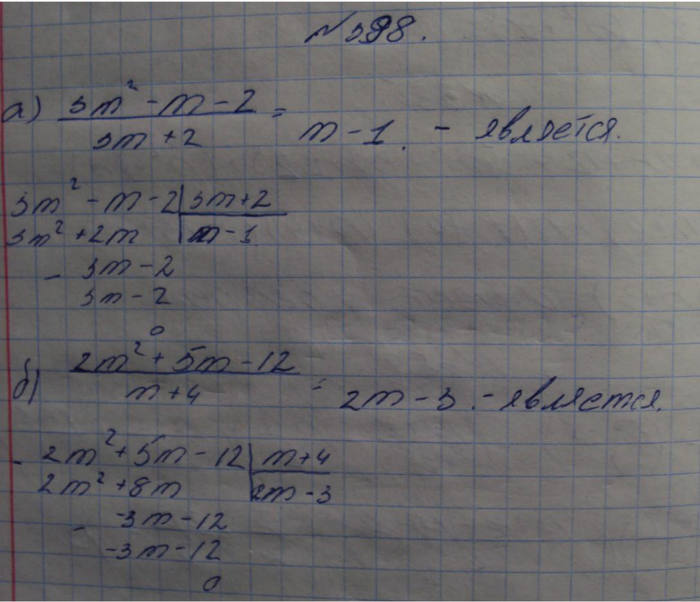 № 398.
а) 3m² - m - 2 / 3m + 2 = m - 1. - является.
3m² - m - 2 | 3m + 2
3m² + 2m | m - 1
- 3m - 2
3m - 2
0
б) 2m² + 5m - 12 / m + 4 = 2m - 3. - является.
- 2m² + 5m - 12 | m + 4
2m² + 8m | 2m - 3
- -3m - 12
-3m - 12
0